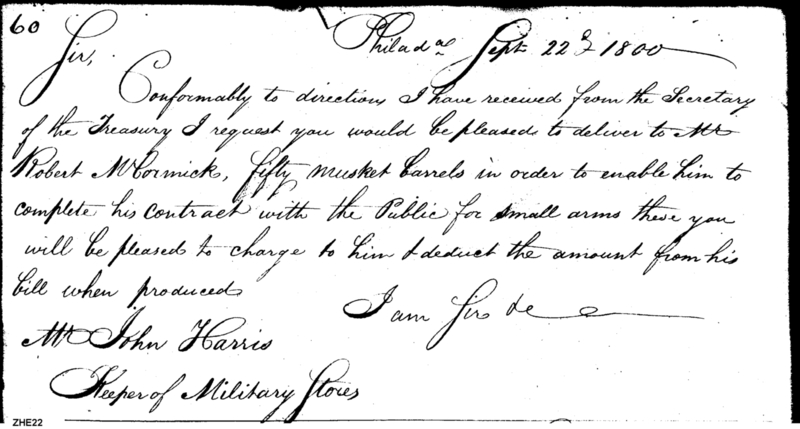 60
Philada Sept 22d 1800
Sir,
Conformably to directions I have received from the Secretary
of the Treasury I request you would be pleased to deliver to Mr
Robert McCormick, fifty musket barrels in order to enable him to
complete his contract with the Public for small arms these you
will be pleased to charge to him & deduct the amount from his
bill when produced
I am Sir &c
Mr John Harris
Keeper of Military Stores
ZHE22